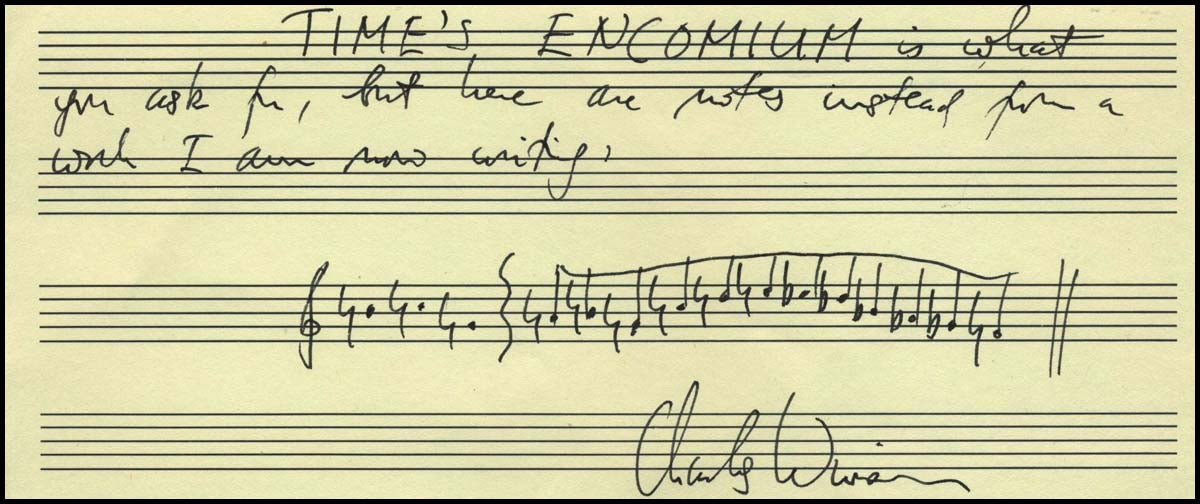 TIME'S ENCOMIUM is what
you ask for, but here are notes instead from a
work I am now writing.
Charles Wuorinen